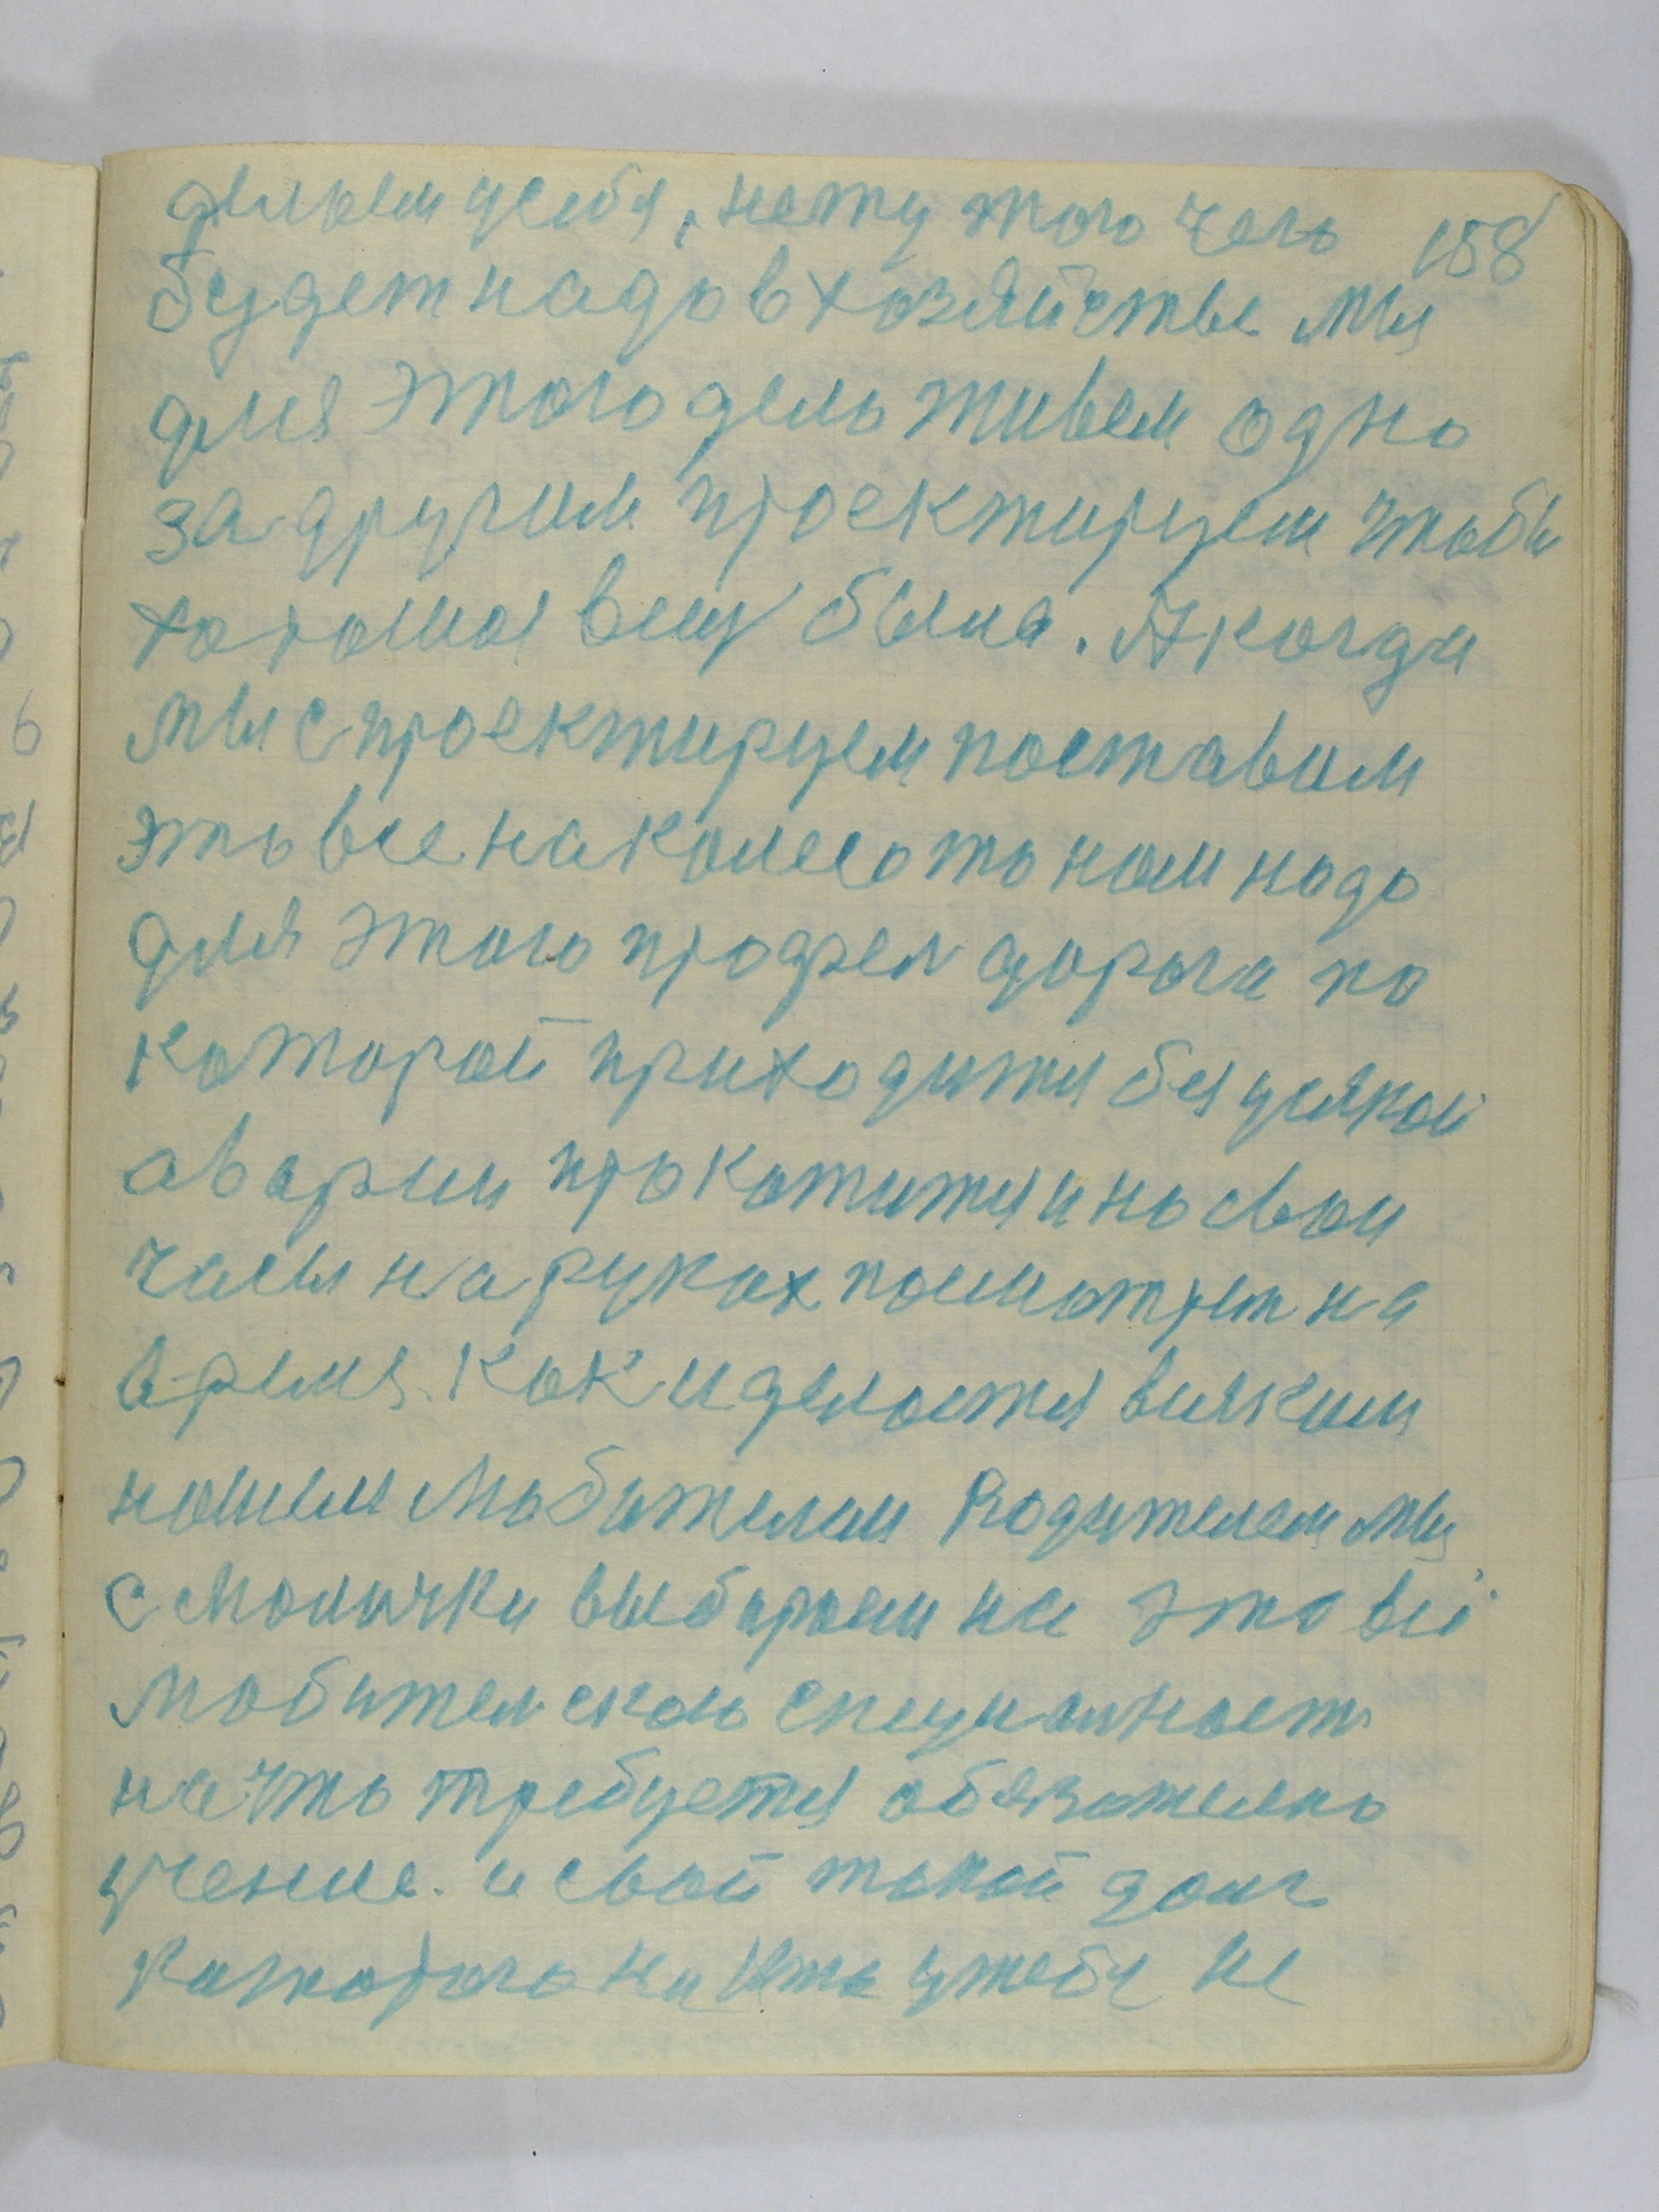 делаем у себя, нету того чего 158
будет надо в хозяйстве мы
для этого дело живем одно
за другим проектируем чтобы
хорошая вещ была. А когда
мы спроектируем поставим
это все на колесо то нам надо
для этого профел дорога по
которой приходится без усякой
аварии прокотится и на свои
часы на руках посмотрет на
время. Как и делается всяким
нашем любителем Водителем мы
с Молички выбираем на это всё
любителскаю специалност
на что требуется обязателно
учение. и свой такой долг
которого никто у тебе не